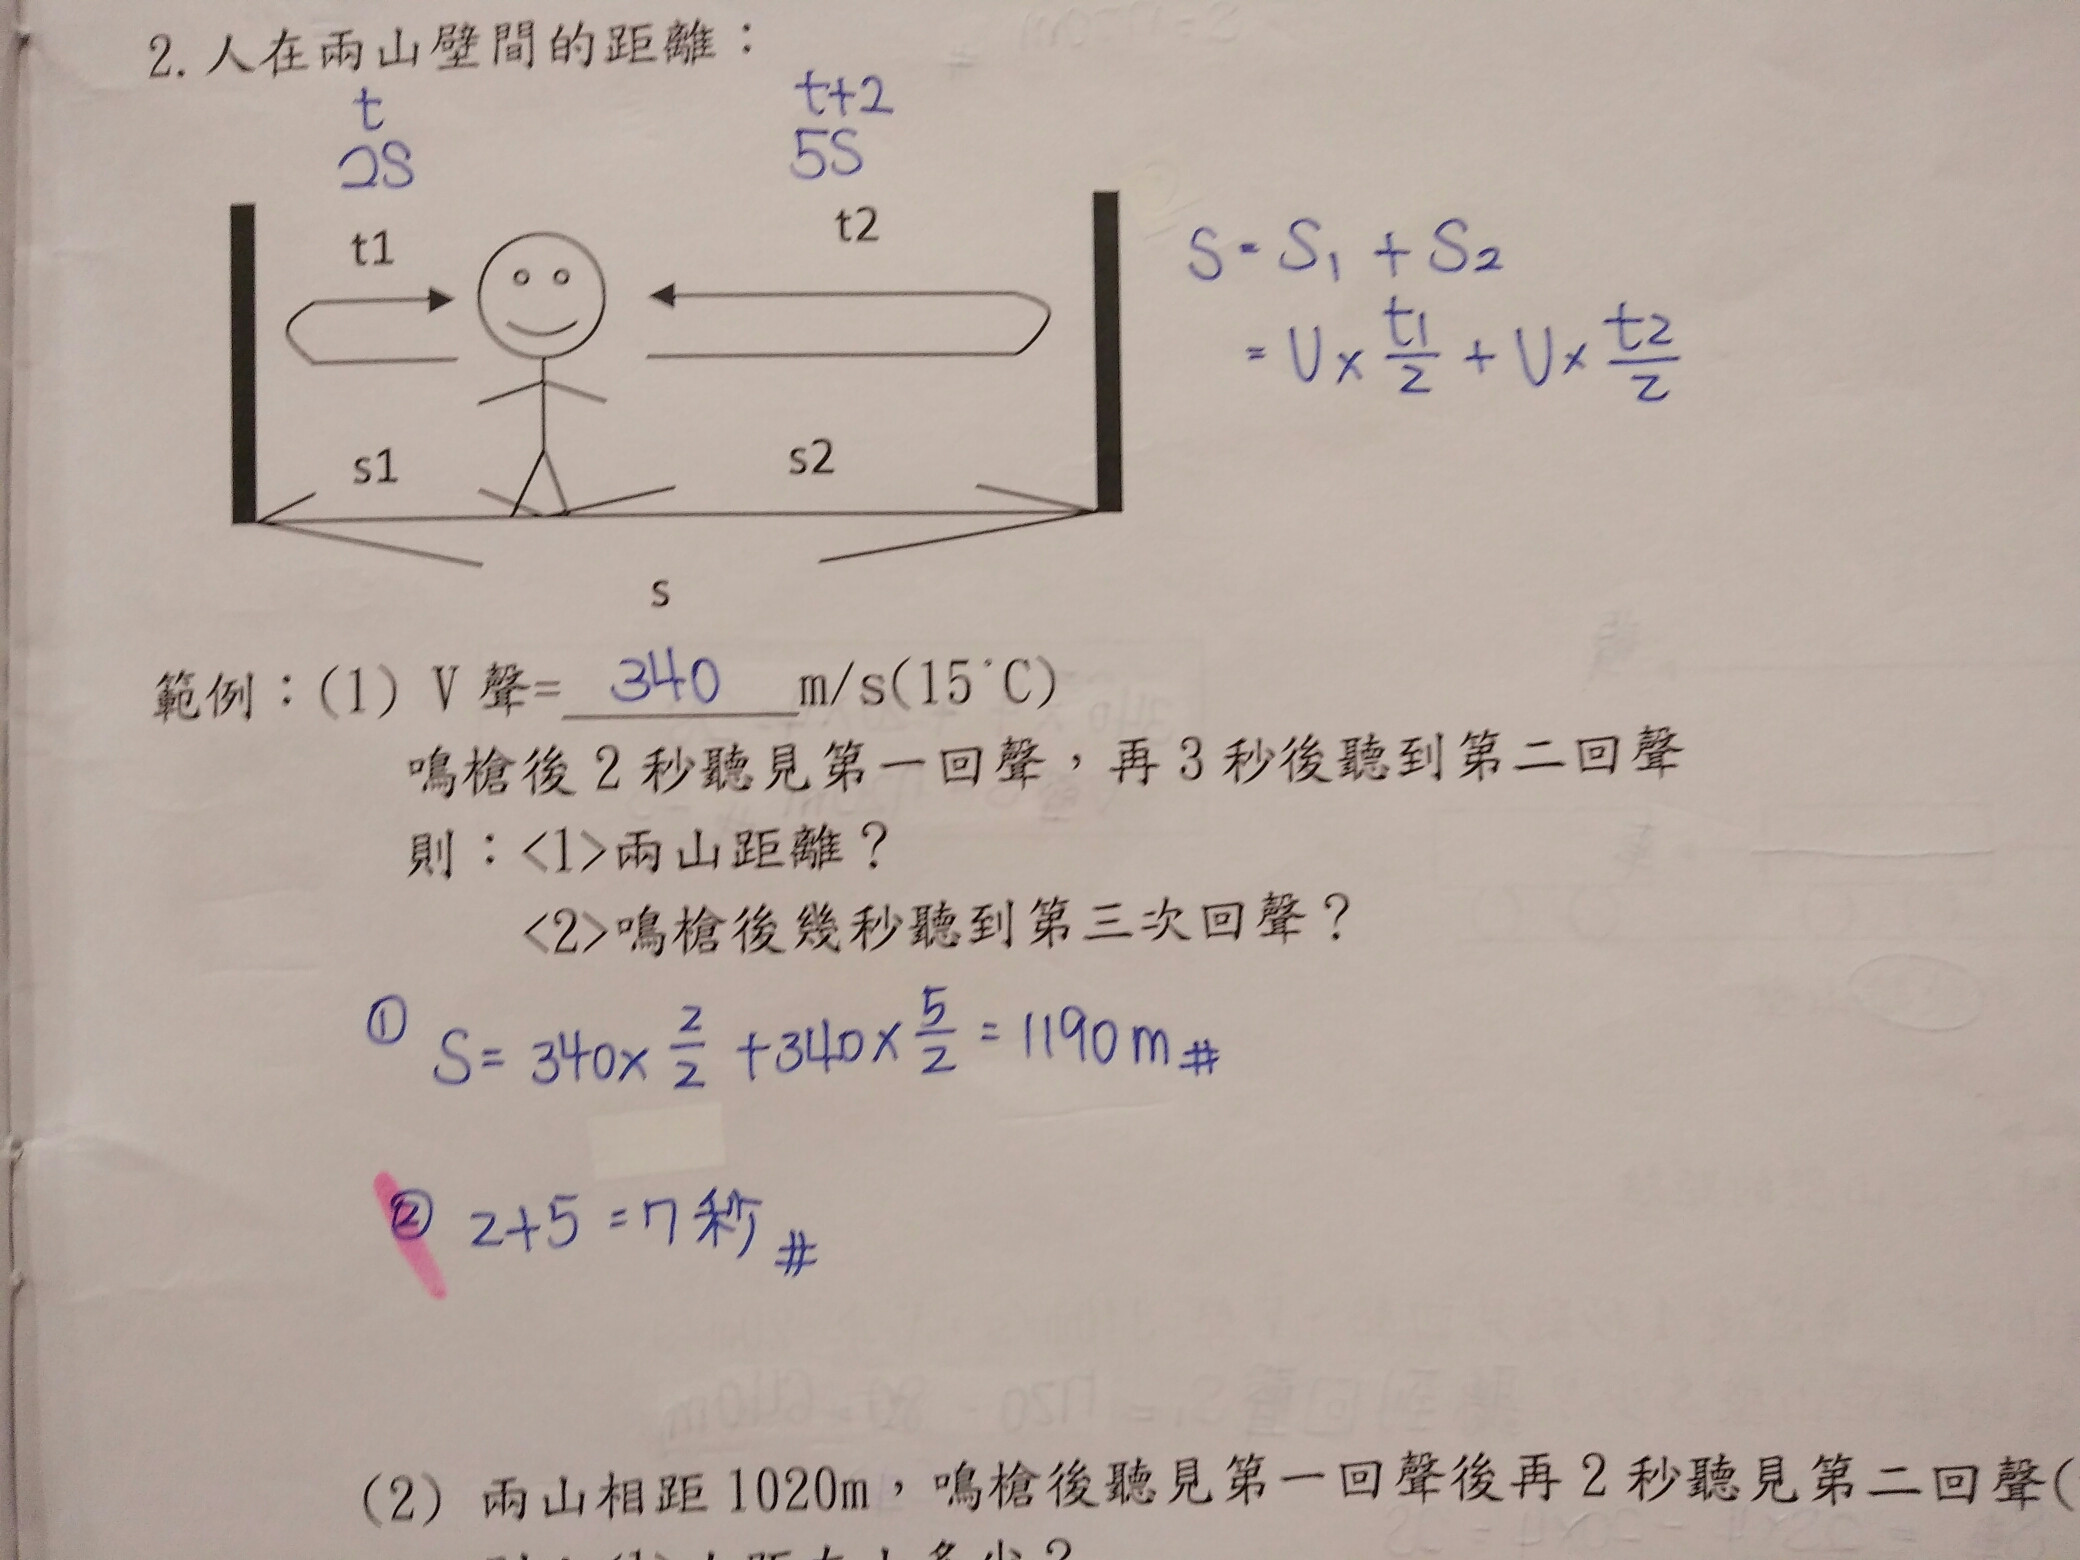 2. 人在兩山壁間的距離：
t
t+2
2S
5S
t1
t2
S = S₁ + S₂
= V × t1/2 + V × t2/2
s1
s2
s
範例：(1) V 聲= 340 m/s(15°C)
鳴槍後 2 秒聽見第一回聲，再 3 秒後聽到第二回聲
則：<1>兩山距離？
<2>鳴槍後幾秒聽到第三次回聲？
① S = 340 × 2/2 + 340 × 5/2 = 1190 m #
② 2+5 = 7 秒 #
(2) 兩山相距 1020m，鳴槍後聽見第一回聲後再 2 秒聽見第二回聲(